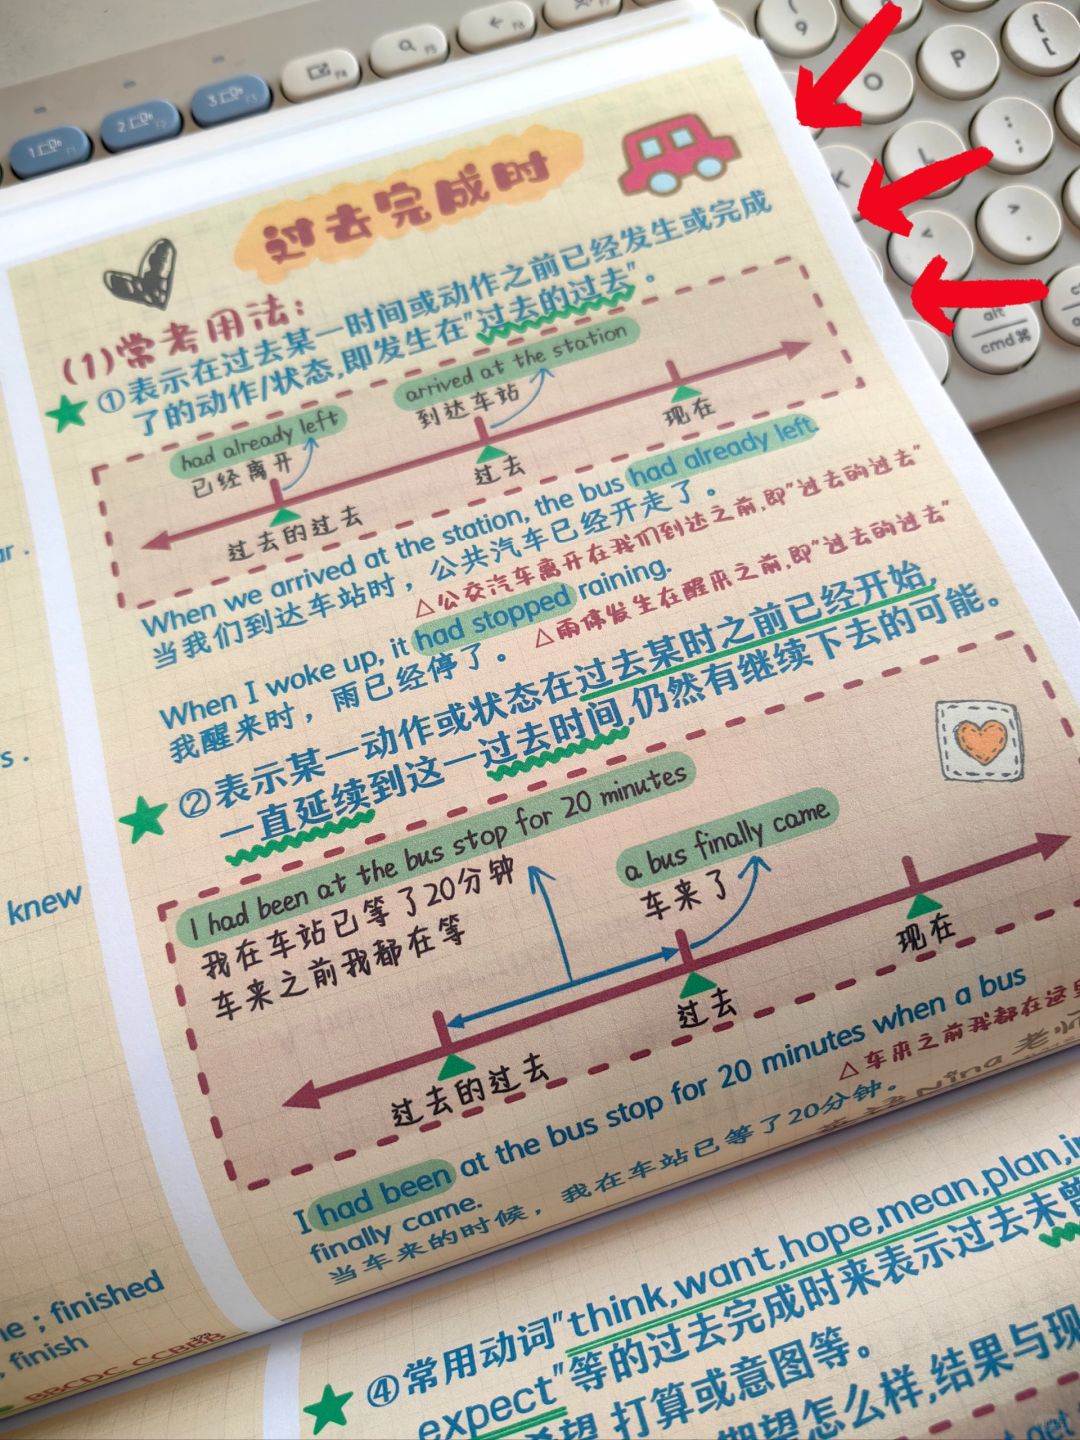 过去完成时
(1)常考用法：
①表示在过去某一时间或动作之前已经发生或完成
了的动作/状态,即发生在"过去的过去"。
had already left
已经离开
arrived at the station
到达车站
过去的过去
过去
现在
When we arrived at the station, the bus had already left.
当我们到达车站时，公共汽车已经开走了。
△公交汽车离开在我们到达之前,即"过去的过去"
When I woke up, it had stopped raining.
我醒来时，雨已经停了。
△雨停发生在醒来之前,即"过去的过去"
②表示某一动作或状态在过去某时之前已经开始,
一直延续到这一过去时间,仍然有继续下去的可能。
I had been at the bus stop for 20 minutes
我在车站已等了20分钟
车来之前我都在等
a bus finally came
车来了
过去的过去
过去
现在
I had been at the bus stop for 20 minutes when a bus
finally came.
△车来之前我都在这里
当车来的时候，我在车站已等了20分钟。
Nina 老师
④常用动词"think,want,hope,mean,plan,
expect"等的过去完成时来表示过去未曾
希望,打算或意图等。
期望怎么样,结果与现
get
knew
; finished
, finish
BBCDC CCBBB
1
F1
2
F2
3
F3
F4
F5
F6
F8
(
9
O
P
{
[
L
:
;
<
,
>
.
alt
cmd ⌘